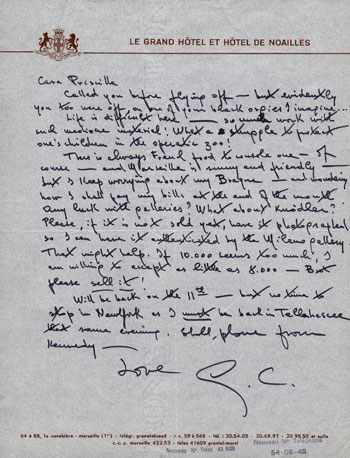 LE GRAND HÔTEL ET HÔTEL DE NOAILLES
Cara Priscilla
Called you before flying off — but evidently
you too were off, on one of your black orgies I imagine...
Life is difficult here — so much work with
such mediocre material! What a struggle to protect
one's children in the operatic zoo!
There is always French food to console one — of
course — and Marseille is sunny and friendly —
but I keep worrying about my Braque — and
how I shall pay my bills at the end of the month
Any luck with galleries? What about Knoedler?
Please, if it is not sold yet, have it photographed
so I can have it authenticated by the Milano gallery
That might help. If 10.000 seems too much, I
am willing to accept as little as 8.000 — But
please sell it!
Will be back on the 11th — but no time to
stop in New York as I must be back in Tallahassee
that same evening. Shall phone from
Kennedy —
Love G. C.
64 à 68, la canebière - marseille (1er) - télégr. granotelnoail - r. c. 59 b 569 - tél. : 20.54-05 20.69-97 - 20.98 50 et suite
c. c. p. marseille 422.53 - télex 41609 grantel-marsl
Nouveau N° Telex 43 609
Nouveau N° Téléphone
54-08-43